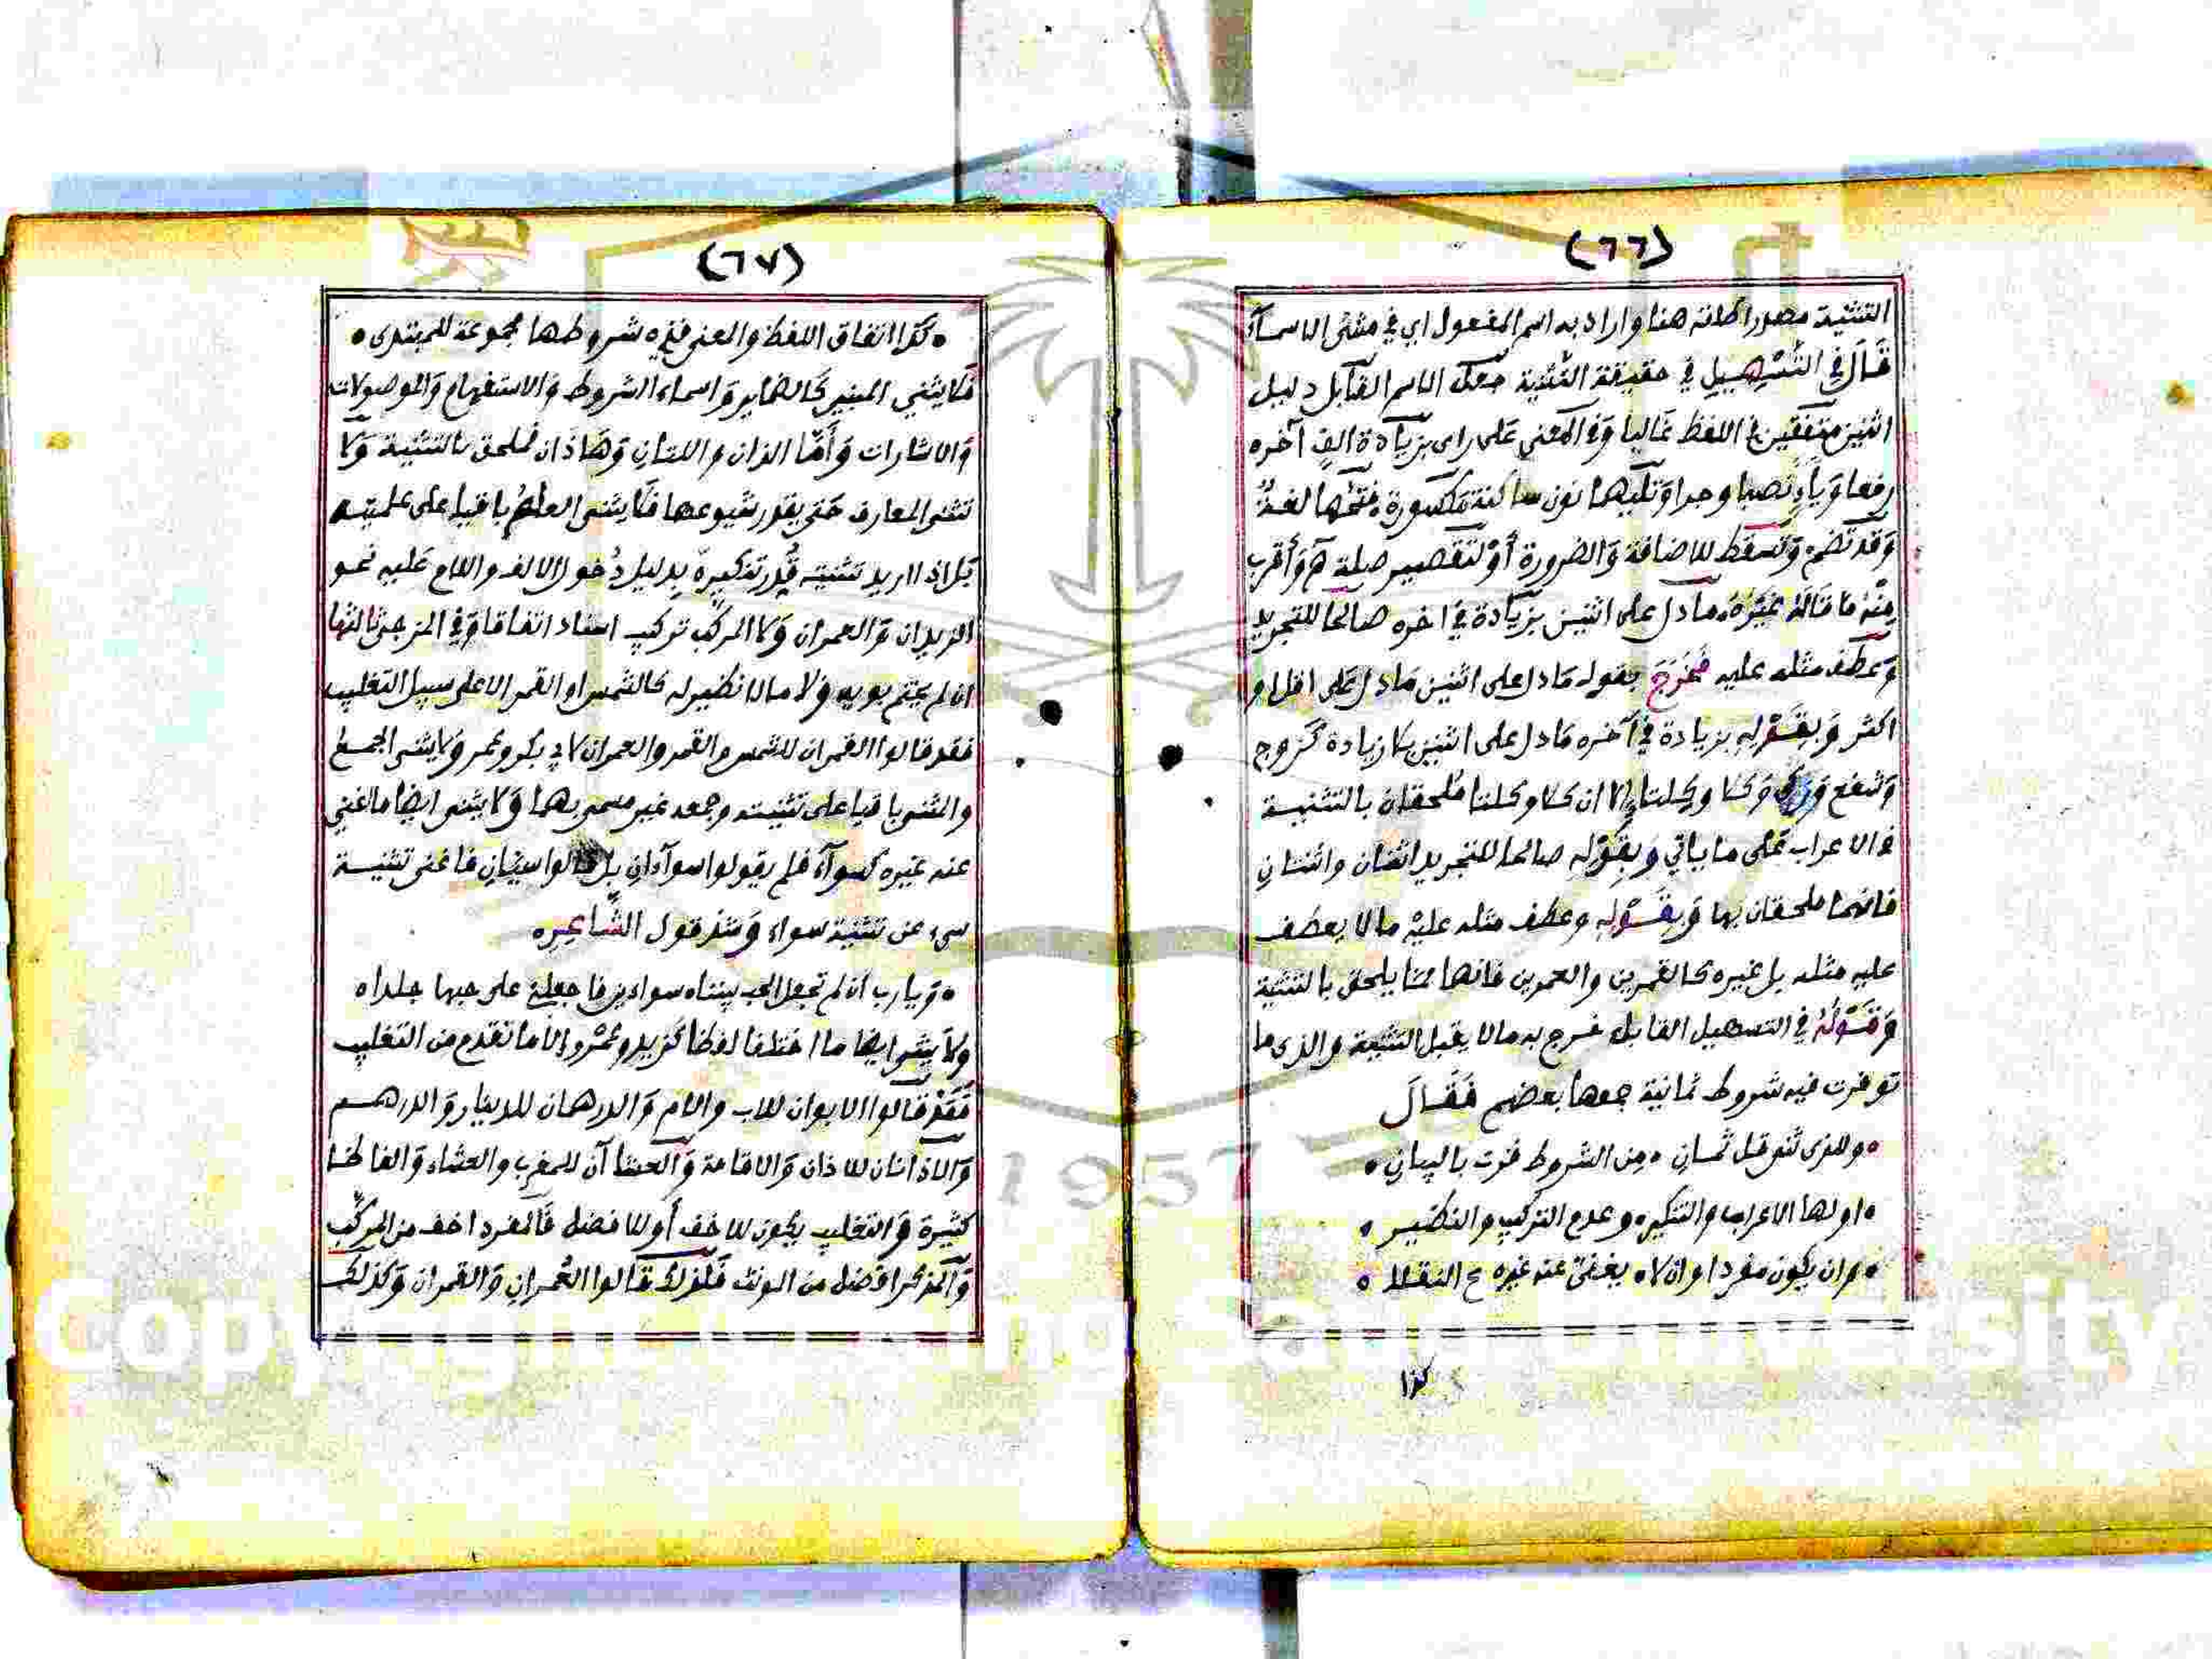 (٦٦)
التثنية مصدر اطلقه هنا واراد به اسم المفعول اي في مثنى الاسمآء
قَالَ في التَّسْهِيلِ في حقيقة التثنية جعلك الاسم القابل دليل
اثنين متفقين في اللفظ غَالبا وَفي المعنى عَلى راى بزيادة الفٍ آخره
رفعا وَيَآءٍ نصبا وجرا وَتليهما نون ساكنة مكسورة فتحها لغةٌ
وَقد تضم وَتسقط للاضافة وَالضرورة أوْ لتقصير صلة هَ وَأقرب
منْه مَا قَالَهُ غيْرهُ ما دل على اثنين بزيَادة في اخره صالحا للتجريد
وَعطف مثله عليه فَخَرَجَ بقوله مَا دل على اثنين مَا دل عَلى اقل او
اكثر وَبِقَوْلِهِ بزيادة في آخره مَا دل على اثنين بلا زيادة كَزوج
وَشفع وَزكى وَكلا وكلتا الا ان كلا وكلتا مُلحقان بالتثنية
في الاعراب عَلى ما ياتي وَبقوْله صالحا للتجريد اثنان واثنتانِ
فانهما ملحقان بها وَبقَوْلِهِ وعطف مثله عليْه ما لا يعطف
عليه مثله بل غيره كالقمرين والعمرين فانها ممَا يلحق بالتثنية
وَقَوْلُهُ في التسهيل القابل خرج به مالا يقبل التثنية والذى ما
توفرت فيه شروط ثمانية جمعها بعضهم فَقَالَ
• وللذى ثنو قل ثمان • من الشروط خزت بالبيان •
• اولها الاعراب والتنكير • وعدم التركيب والنظير •
• وان يكون مفردا وان لا • يغني عنه غيره ح النقلا •
كذا
(٦٧)
• كذا اتفاق اللفظ والمعنى فذه شروطها مجموعة للمبتدى •
فَلا يثني المبني كَالضماير وَاسماء الشروط وَالاستفهام وَالموصولات
وَالاشارات وَأمّا الذان واللتان وَهَاذان فملحق بالتثنية وَلا
تثنى المعارف حَتى يقدر شيوعها فَلا يثنى العلم باقيا على علميته
بَل اذا اريد تثنيته قُدر تنكيره بدليل دُخول الالف واللام عليه نحو
الزيدان وَالعمران وَلا المركّب تركيب اسناد اتفاقا وَفي المزجى ثالثها
ان لم يختم بويه وَلا مالا نظير له كالشمس او القمر الا على سبيل التغليب
فقد قالوا القمران للشمس والقمر والعمران لابي بكر وعمر وَلا يثنى الجمع
والمثنى باقيا على تثنيته وجمعه غير مسمى بهما وَلا يثنى ايضا ما غني
عنه غيره كسوآء فلم يقولوا سواءان بل قالوا سيان فاغنى تثنية
سي عن تثنية سواء وَشذ قول الشَّاعِره
• وَيا رب ان لم تجعل الحب بيننا • سواءين فاجعلني على حبها جلدا •
ولا يثنى ايضا ما اختلفا لفظا كزيد وعمْرو الا ما تقدم من التغليب
فَقَدْ قالوا الابوان للاب والام وَالدرهمان للدينار وَالدرهم
وَالاذانان للاذان وَالاقامة وَالعشاآن للمغرب والعشاء وَالفاظا
كثيرة وَالتغليب يكون للاخف أو للافضل فَالمفرد اخف من المركّب
وَالمذكر افضل من المونث فَلذلك قَالوا العُمران وَالقمران وَكذلك